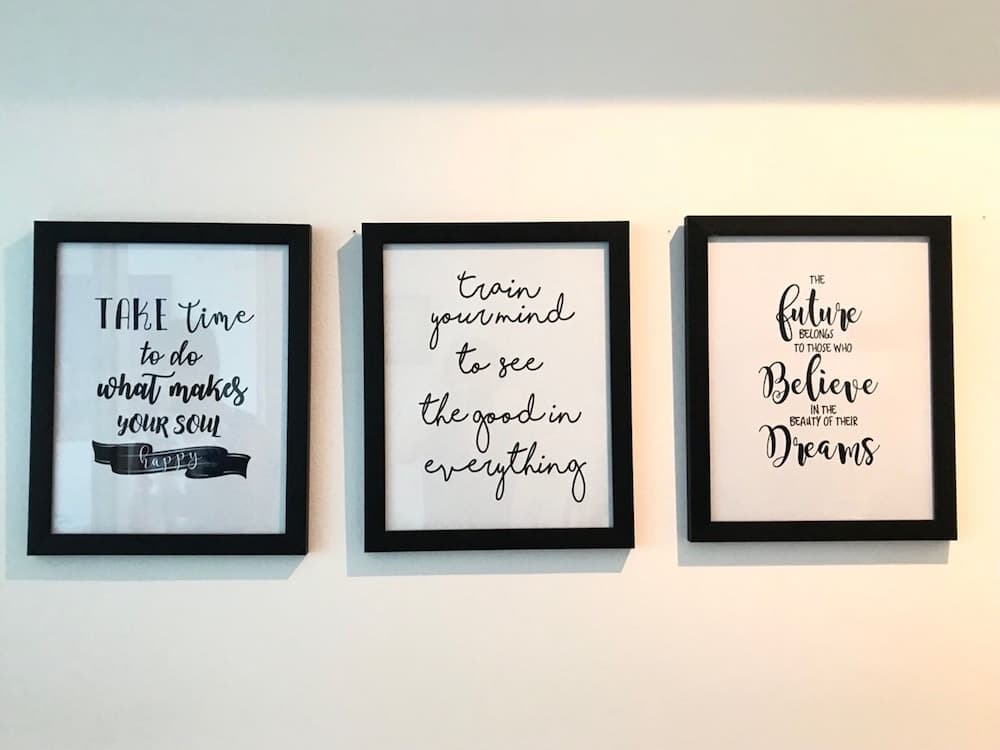 TAKE time
to do
what makes
YOUR SOUL
happy
train
your mind
to see
the good in
everything
THE
future
BELONGS
TO THOSE WHO
Believe
IN THE
BEAUTY OF THEIR
Dreams